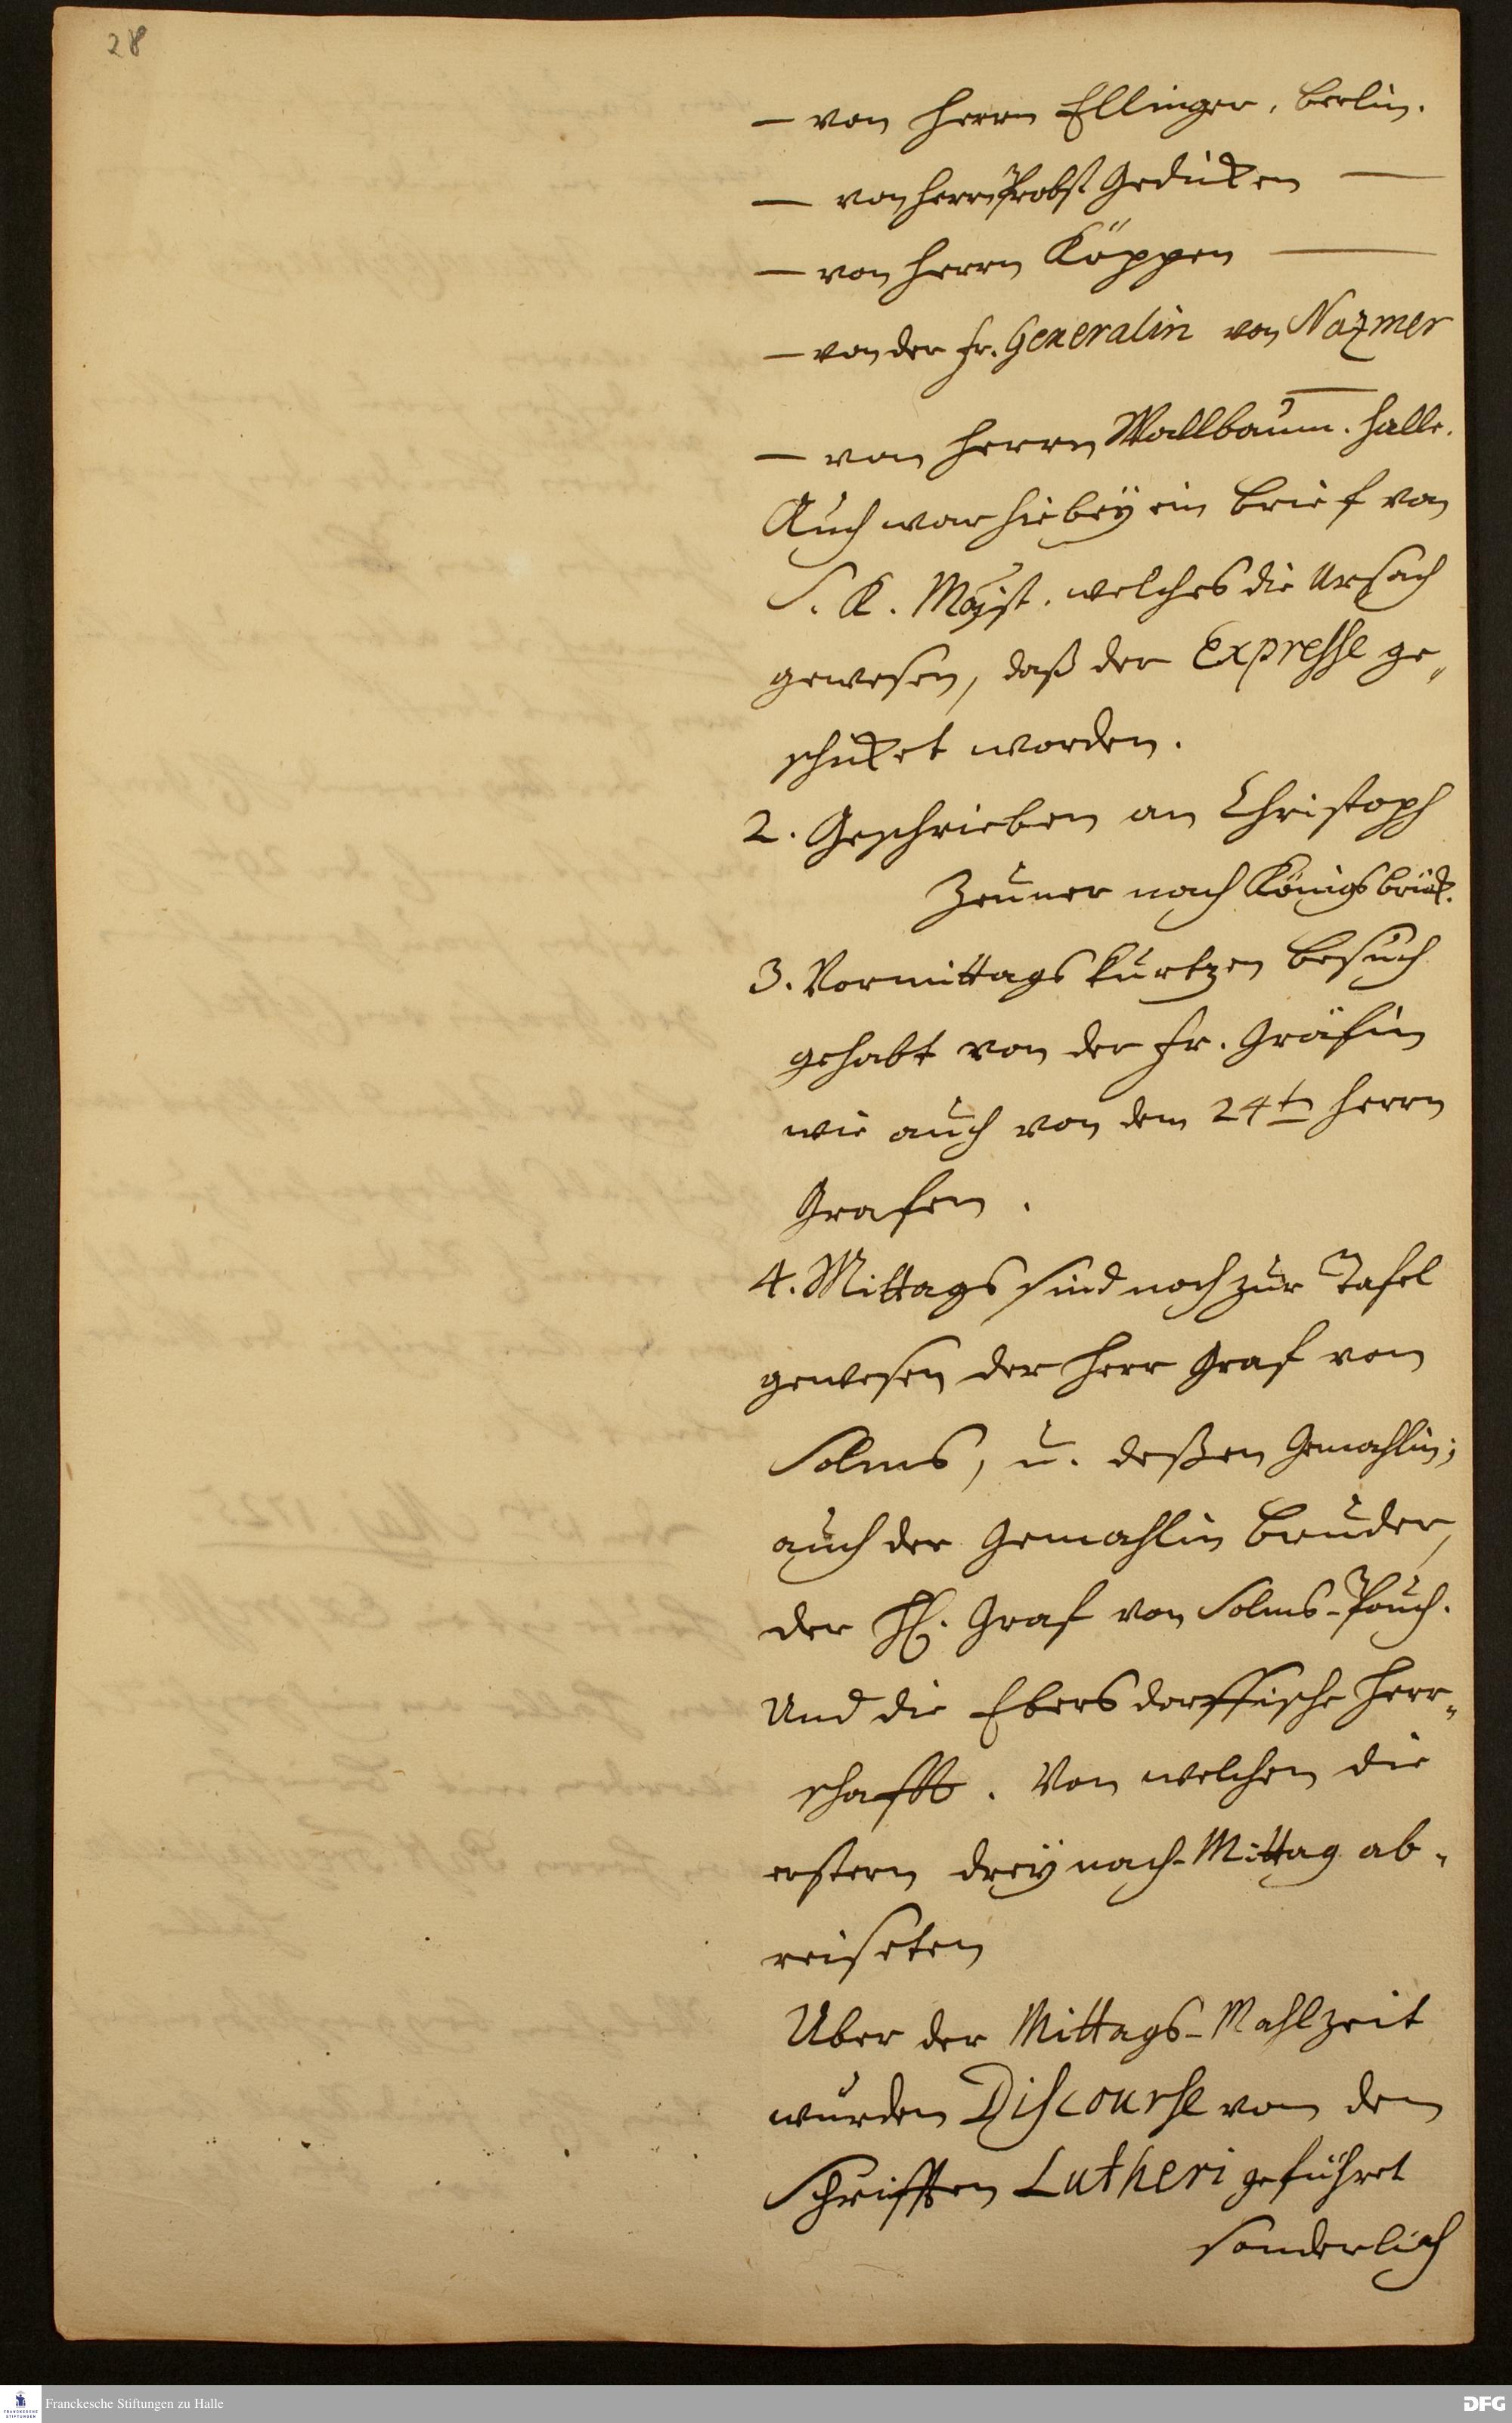 28
— von Herrn Ellinger, Berlin.
— von Herrn Probst Gedicken —
— von Herrn Köppen —
— von der Fr. Generalin von Nazmer
—
— von Herrn Wallbaum. Halle.
Auch war hiebey ein Brief von
S. K. Majst. welches die Ursach
gewesen, daß der Expresse ge„
schicket worden.
2. Geschrieben an Christoph
Zeuner nach Königsbrück.
3. Vormittags kurtzen Besuch
gehabt von der Fr. Gräfin
wie auch von dem 24tn Herrn
Grafen.
4. Mittags sind noch zur Tafel
gewesen der Herr Graf von
Solms, u. deßen Gemahlin;
auch der Gemahlin Bruder,
der H. Graf von Solms-Pouch.
Und die Ebersdorffische Herr„
schafft. Von welchen die
erstern drey nach-Mittag ab„
reiseten
Uber der Mittags-Mahlzeit
wurden Discourse von den
Schrifften Lutheri geführet
sonderlich
Franckesche Stiftungen zu Halle
DFG